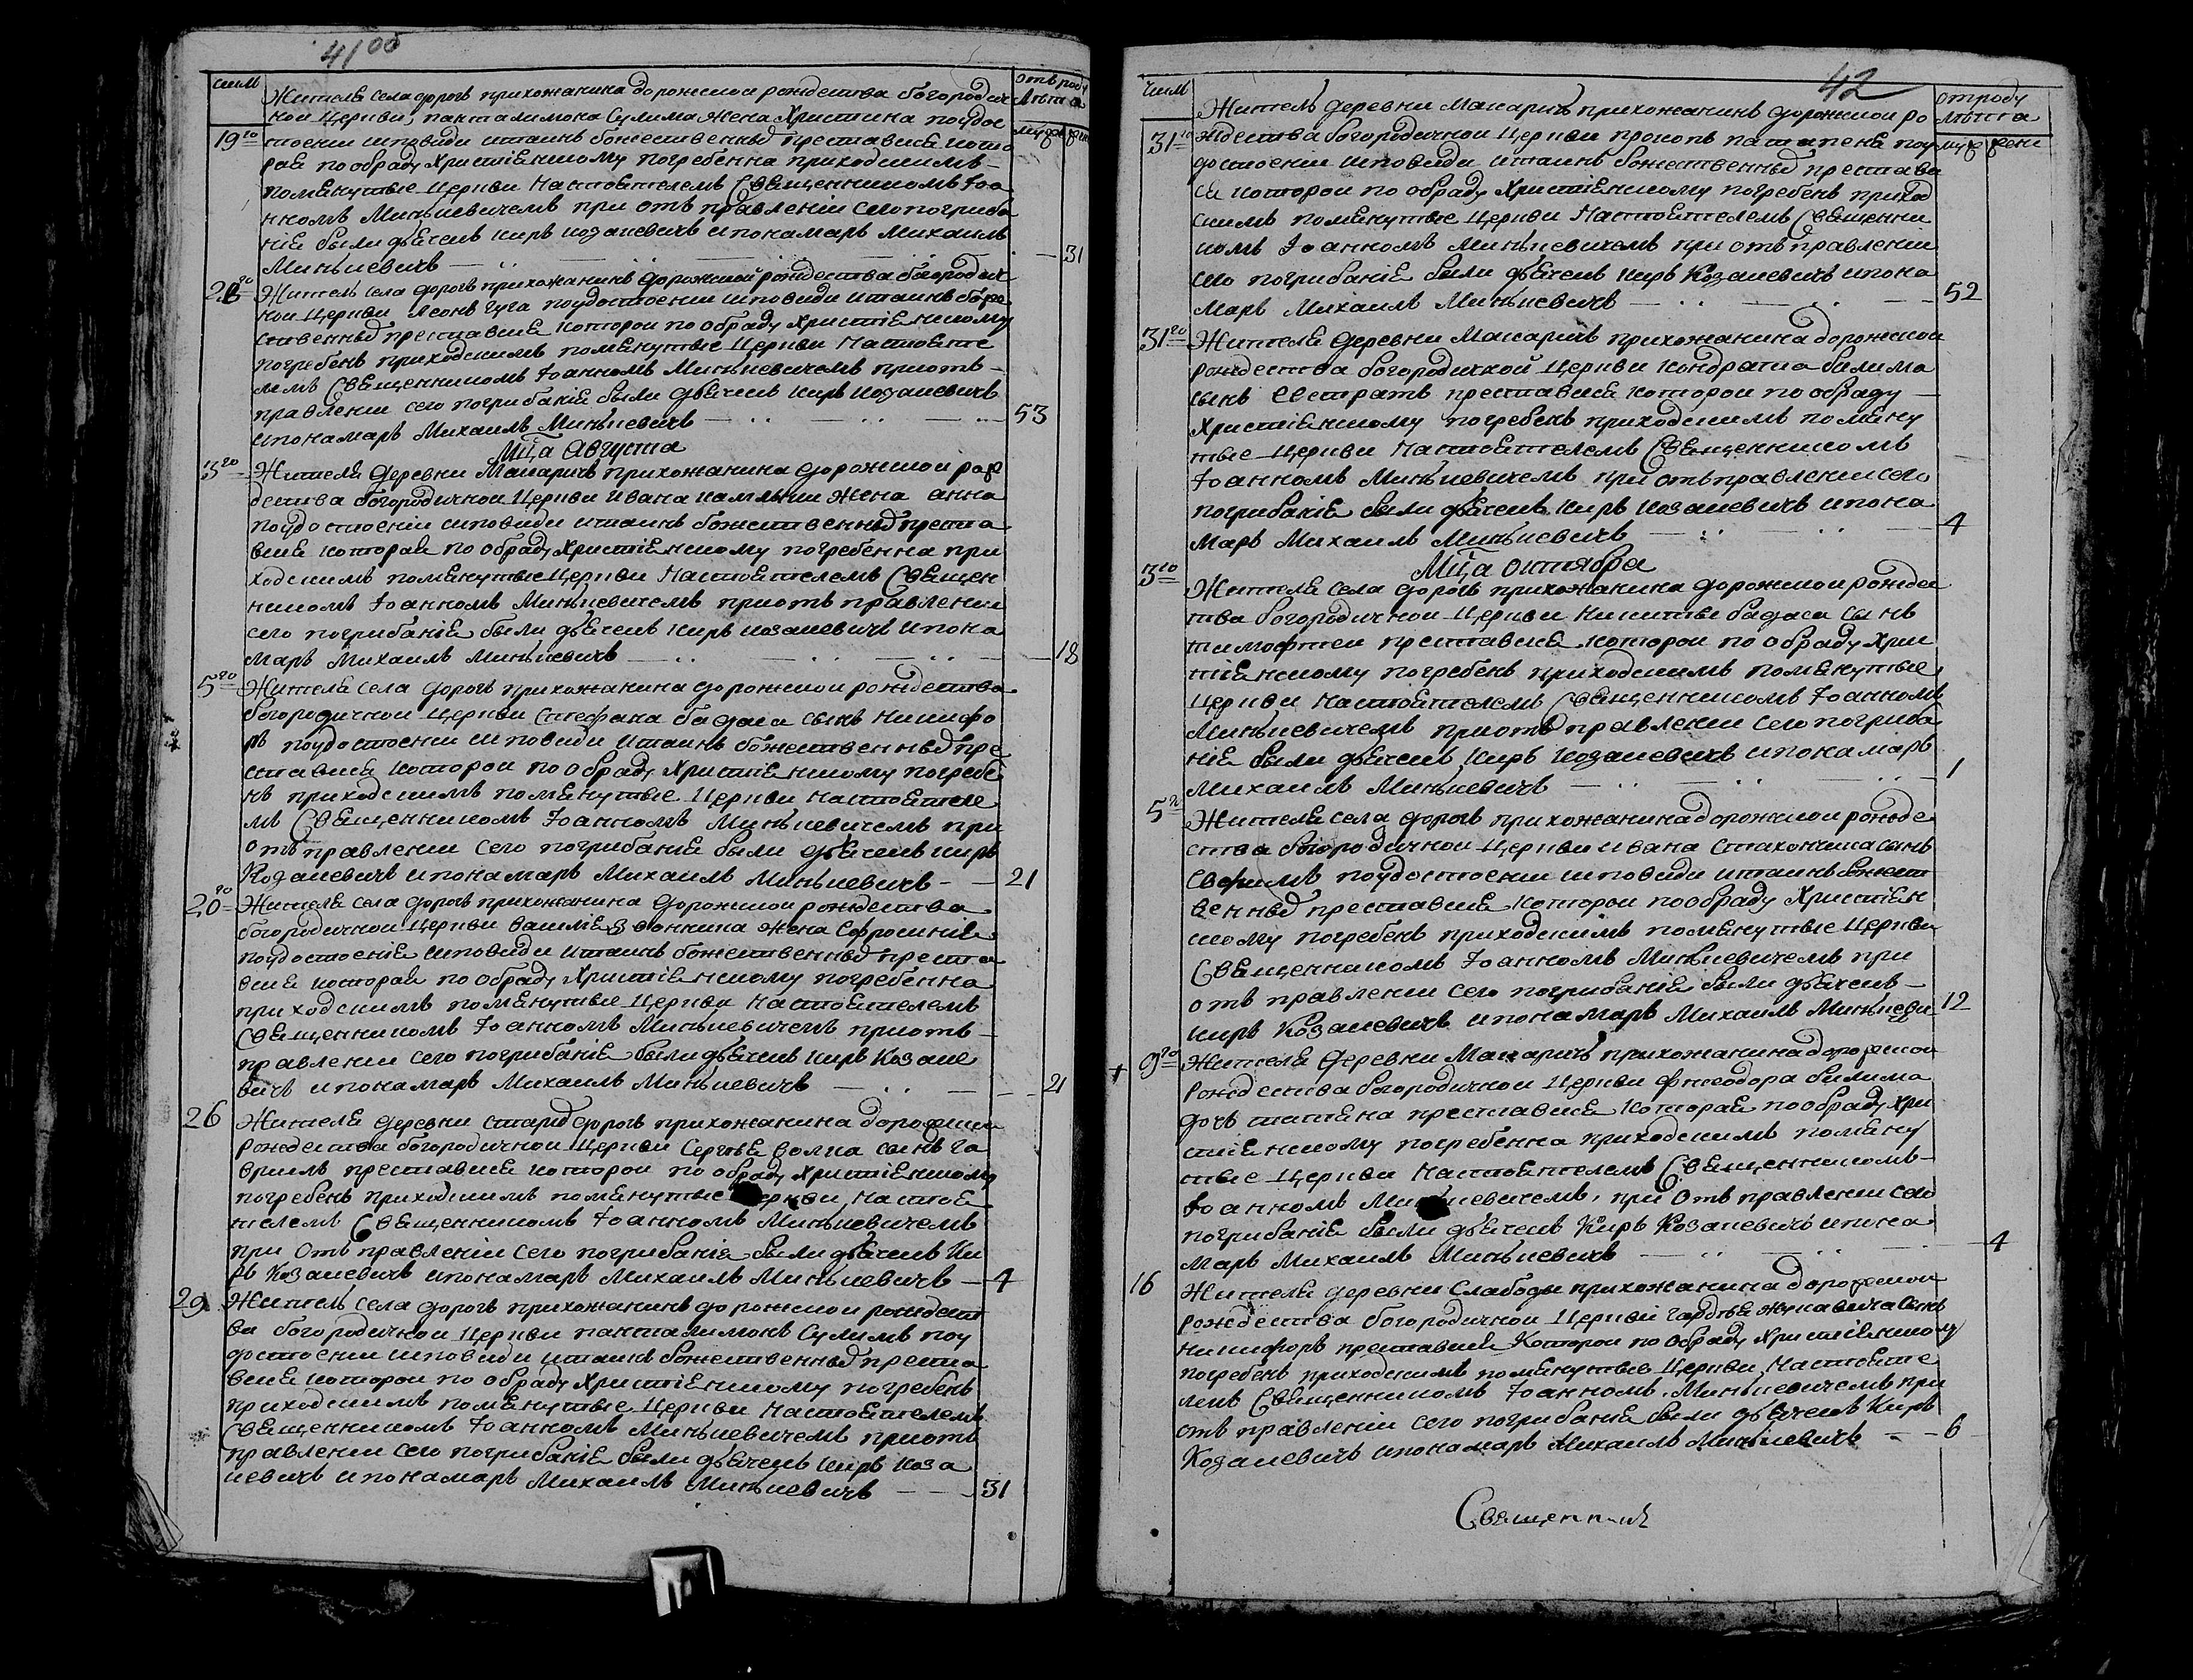 41 об
число
отъ роду
лѣта
муж жен
Жителя села дорогъ прихожанина дорожскои рождества богородич
нои Церкви, панталимона Сулима жена Христина поудос
19го тоении исповиди итаинъ божественныхъ преставися кото
рая пообряду Христіянскому погребенна приходскимъ
помянутые Церкви Настоятелемъ Священникомъ Іоа
нномъ Минкевичемъ при отъ правленіи сего погриба
ніе были дьячекъ киръ козакевичъ ипонамаръ Михаилъ
Минкевичъ 31
Житель села дорогъ прихожанинъ дорожскои рождества богородич
нои Церкви Леонъ гуга поудостоении исповиди итаинъ боже
ственныхъ преставися которои по обряду Христіянскому
погребенъ приходскимъ помянутые Церкви Настояте
лемъ Священникомъ Іоанномъ Минкевичемъ приотъ
правлении сего погрибаніе были дьячекъ киръ козакевичъ
ипонамаръ Михаилъ Минкевичъ 53
Мца Августа
3го Жителя деревни Макаричъ прихожанина дорожскои рож
дества богородичнои Церкви Ивана жена анна
поудостоении исповиди итаинъ божественныхъ преста
вися которая по обряду Христіянскому погребенна при
ходскимъ помянутые Церкви Настоятелемъ Священ
никомъ Іоанномъ Минкевичемъ приотъ правлении
сего погрибаніе были дьячекъ киръ козакевичъ ипона
маръ Михаилъ Минкевичъ 18
5го Жителя села дорогъ прихожанина дорожскои рождества
богородичнои Церкви Стефана бадака сынъ никифо
ръ поудостоении исповиди итаинъ божественныхъ пре
ставися которои по обряду Христіянскому погребе
нъ приходскимъ помянутые Церкви настояте
мъ Священникомъ Іоанномъ Минкевичемъ при
отъ правлении сего погрибаніе были дьячекъ киръ
Козакевичъ ипонамаръ Михаилъ Минкевичъ 21
20го Жителя села дорогъ прихожанина дорожскои рождества
богородичнои Церкви жена Софроснія
поудостоеніе исповиди итаинъ божественныхъ преста
вися которая по обряду Христіянскому погребенна
приходскимъ помянутые Церкви настоятелемъ
Священникомъ Іоанномъ Минкевичемъ приотъ
правлении сего погрибаніе были дьячекъ киръ Козаке
вичъ ипонамаръ Михаилъ Минкевичъ 21
26 Жителя деревни старыхъ дорогъ прихожанина дорожскои
рождества богородичнои Церкви Сергѣя волка сынъ га
врилъ преставися которои по обряду Христіянскому
погребенъ приходскимъ помянутые Церкви Настоя
телемъ Священникомъ Іоанномъ Минкевичемъ
при отъ правленіи сего погрибаніе были дьячекъ Ки
ръ Козакевичъ ипонамаръ Михаилъ Минкевичъ 4
29 Житель села дорогъ прихожанинъ дорожскои рождест
ва богородичнои Церкви панталимонъ Сулимъ поу
достоении исповиди итаинъ божественныхъ преста
вися которои по обряду Христіянскому погребенъ
приходскимъ помянутые Церкви Настоятелемъ
Священникомъ Іоанномъ Минкевичемъ приотъ
правлении сего погрибаніе были дьячекъ киръ коза
кевичъ ипонамаръ Михаилъ Минкевичъ 31
42
число
отроду
лѣта
муж жени
Житель деревни Макаричъ прихожанинъ дорожскои ро
31го ждества богородичнои Церкви прокопъ поу
достоении исповиди итаинъ божественныхъ престави
ся которои по обряду Христіянскому погребенъ приход
скимъ помянутые Церкви Настоятелемъ Священни
комъ Іоанномъ Минкевичемъ при отъ правлении
сего погрибаніе были дьячекъ киръ Козакевичъ ипона
маръ Михаилъ Минкевичъ 52
31го Жителя деревни Макаричъ прихожанина дорожскои
рождества богородичкой Церкви кондрата билима
сынъ Евстратъ преставися которои по обряду
Христіянскому погребенъ приходскимъ помяну
тые Церкви Настоятелемъ Священникомъ
Іоанномъ Минкевичемъ при отъ правлении сего
погрибаніе были дьячекъ киръ козакевичъ ипона
маръ Михаилъ Минкевичъ 4
Мца октября
3го Жителя села дорогъ прихожанина дорожскои рождес
тва богородичнои Церкви никиты бадака сынъ
тимофтеи преставися которои по обряду Хрис
тіянскому погребенъ приходскимъ помянутые
Церкви Настоятелемъ Священникомъ Іоанномъ
Минкевичемъ приотъ правлении сего погриба
ніе были дьячекъ киръ Козакевичъ ипонамаръ
михаилъ Минкевичъ 1
5го Жителя села дорогъ прихожанина дорожскои рожде
ства богородичнои Церкви ивана сынъ
Евфимъ поудостоении исповиди итаинъ божест
венныхъ преставися которои пообряду Христіян
скому погребенъ приходскимъ помянутые Церкви
Священникомъ Іоанномъ Минкевичемъ при
отъ правлении сего погрибаніе были дьячекъ
киръ Козакевичъ ипонамаръ Михаилъ Минкеви 12
9го Жителя деревни Макаричъ прихожанина дорожскои
рождества богородичнои Церкви Фтеодора билима
дочъ татяна преставися которая пообряду Хри
стіянскому погребенна приходскимъ помяну
тые Церкви настоятелемъ Священникомъ
Іоанномъ Минкевичемъ, при отъ правлении сего
погрибаніе были дьячекъ Киръ Козакевичъ ипона
маръ Михаилъ Минкевичъ 4
16 Жителя деревни Слабоды прихожанина дорожскои
рождества богородичнои Церкви гардѣя сынъ
никифоръ преставися Которои по обряду Христіянскому
погребенъ приходскимъ помянутые Церкви Настояте
лемъ Священникомъ Іоанномъ Минкевичемъ при
отъ правленіи сего погрибаніе были дьячекъ Киръ
Козакевичъ ипонамаръ Михаилъ Минкевичъ 6
Священникъ